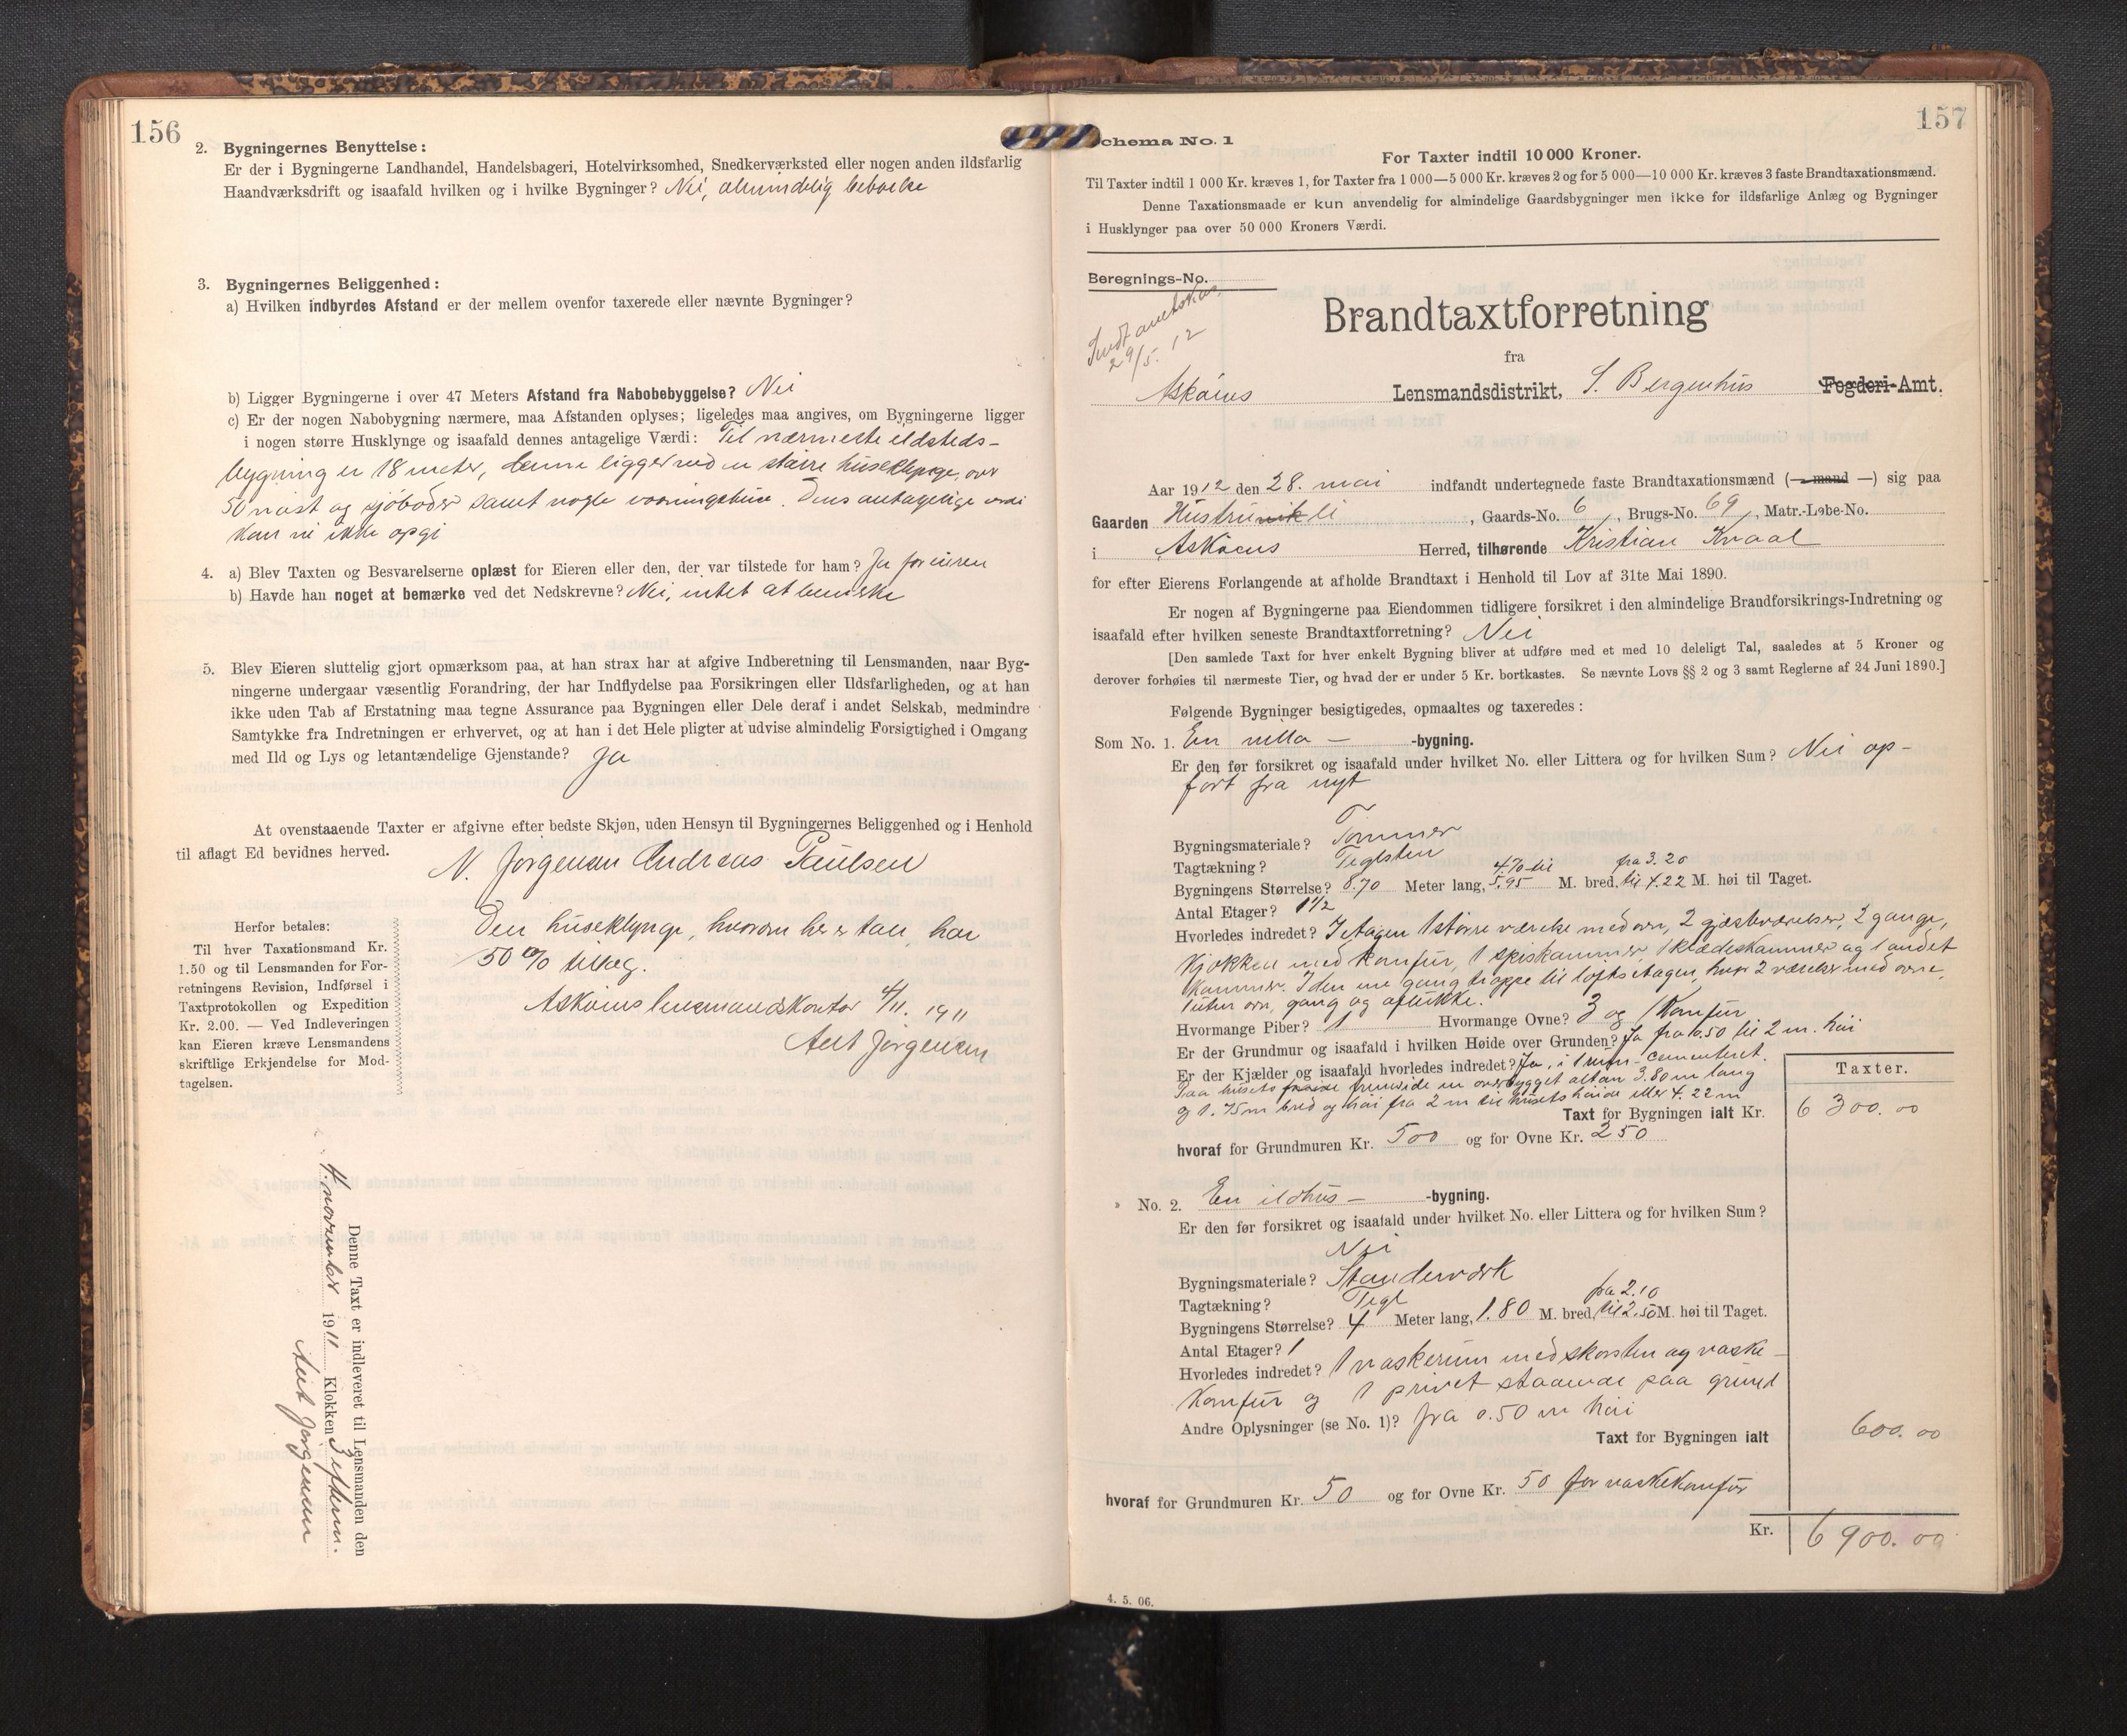 156
2. Bygningernes Benyttelse:
Er der i Bygningerne Landhandel, Handelsbageri, Hotelvirksomhed, Snedkerværksted eller nogen anden ildsfarlig
Haandværksdrift og isaafald hvilken og i hvilke Bygninger? Nei, almindelig beboelse
3. Bygningernes Beliggenhed:
a) Hvilken indbyrdes Afstand er der mellem ovenfor taxerede eller nævnte Bygninger?
b) Ligger Bygningerne i over 47 Meters Afstand fra Nabobebyggelse? Nei
c) Er der nogen Nabobygning nærmere, maa Afstanden oplyses; ligeledes maa angives, om Bygningerne ligger
i nogen større Husklynge og isaafald dennes antagelige Værdi: Til nærmeste ildsteds-
bygning er 18 meter, denne ligger ved en større huseklynge, over
50 nøst og sjøboder samt nogle vaaningshuse. Dens antagelige verdi
kan vi ikke opgi
4. a) Blev Taxten og Besvarelserne oplæst for Eieren eller den, der var tilstede for ham? Ja for eieren
b) Havde han noget at bemærke ved det Nedskrevne? Nei, intet at bemerke
5. Blev Eieren sluttelig gjort opmærksom paa, at han strax har at afgive Indberetning til Lensmanden, naar Byg-
ningerne undergaar væsentlig Forandring, der har Indflydelse paa Forsikringen eller Ildsfarligheden, og at han
ikke uden Tab af Erstatning maa tegne Assurance paa Bygningen eller Dele deraf i andet Selskab, medmindre
Samtykke fra Indretningen er erhvervet, og at han i det Hele pligter at udvise almindelig Forsigtighed i Omgang
med Ild og Lys og letantændelige Gjenstande? Ja
At ovenstaaende Taxter er afgivne efter bedste Skjøn, uden Hensyn til Bygningernes Beliggenhed og i Henhold
til aflagt Ed bevidnes herved.
N. Jørgensen Andreas Paulsen
Den huseklynge, hvorom her er tale, har
50 % tillæg.
Askøens lensmandskontor 4/11. 1911
Aut Jørgensen
Herfor betales:
Til hver Taxationsmand Kr.
1.50 og til Lensmanden for For-
retningens Revision, Indførsel i
Taxtprotokollen og Expedition
Kr. 2.00. — Ved Indleveringen
kan Eieren kræve Lensmandens
skriftlige Erkjendelse for Mod-
tagelsen.
Denne Taxt er indleveret til Lensmanden den
4. november 1911 Klokken 3 efterm.
Aut Jørgensen
157
chema No. 1
For Taxter indtil 10 000 Kroner.
Til Taxter indtil 1 000 Kr. kræves 1, for Taxter fra 1 000—5 000 Kr. kræves 2 og for 5 000—10 000 Kr. kræves 3 faste Brandtaxationsmænd.
Denne Taxationsmaade er kun anvendelig for almindelige Gaardsbygninger men ikke for ildsfarlige Anlæg og Bygninger
i Husklynger paa over 50 000 Kroners Værdi.
Beregnings-No.
29/5. 12
Brandtaxtforretning
fra
Askøens Lensmandsdistrikt, S. Bergenhus Fogderi-Amt.
Aar 1912 den 28. mai indfandt undertegnede faste Brandtaxationsmænd (— mand —) sig paa
Gaarden , Gaards-No. 6, Brugs-No. 69, Matr.-Løbe-No.
i Askøens Herred, tilhørende Kristian Kvaal
for efter Eierens Forlangende at afholde Brandtaxt i Henhold til Lov af 31te Mai 1890.
Er nogen af Bygningerne paa Eiendommen tidligere forsikret i den almindelige Brandforsikrings-Indretning og
isaafald efter hvilken seneste Brandtaxtforretning? Nei
[Den samlede Taxt for hver enkelt Bygning bliver at udføre med et med 10 deleligt Tal, saaledes at 5 Kroner og
derover forhøies til nærmeste Tier, og hvad der er under 5 Kr. bortkastes. Se nævnte Lovs §§ 2 og 3 samt Reglerne af 24 Juni 1890.]
Følgende Bygninger besigtigedes, opmaaltes og taxeredes:
Som No. 1. En villa — -bygning.
Er den før forsikret og isaafald under hvilket No. eller Littera og for hvilken Sum? Nei op-
ført fra nyt
Bygningsmateriale? Tømmer
Tagtækning? Teglsten
Bygningens Størrelse? 8.70 Meter lang, 4.70 til 5.95 M. bred, fra 3.20 til 4.22 M. høi til Taget.
Antal Etager? 1½
Hvorledes indredet? I etagen 1 større værelse med ovn, 2 gjæsteværelser, 2 gange,
kjøkken med komfur, 1 spiskammer, 1 klædeskammer og 1 andet
kammer. I den ene gang trappe til loftsetagen, hvor 2 værelser med ovne,
uten ovn, gang og aflukke.
Hvormange Piber? 1 Hvormange Ovne? 3 og 1 Komfur
Er der Grundmur og isaafald i hvilken Høide over Grunden? Ja fra 0.50 til 2 m. høi
Er der Kjælder og isaafald hvorledes indredet? Ja, i 1 rum - cementeret.
Paa husets fremside en overbygget altan 3.80 m lang
og 1.75 m bred og høi fra 2 m til husets høide eller 4.22 m
Taxter.
Taxt for Bygningen ialt Kr. 6 300.00
hvoraf for Grundmuren Kr. 500 og for Ovne Kr. 250
» No. 2. En ildhus — -bygning.
Er den før forsikret og isaafald under hvilket No. eller Littera og for hvilken Sum?
Nei
Bygningsmateriale? Standerværk
Tagtækning? Tegl
Bygningens Størrelse? 4 Meter lang, 1.80 M. bred, fra 2.10 til 2.50 M. høi til Taget.
Antal Etager? 1
Hvorledes indredet? 1 vaskerum med skorsten og vaske-
komfur og 1 privet staaende paa grund
Andre Oplysninger (se No. 1)? fra 0.50 m høi
Taxt for Bygningen ialt 600.00
hvoraf for Grundmuren Kr. 50 og for Ovne Kr. 50 for vaskekomfur
Kr. 6 900.00
4. 5. 06.